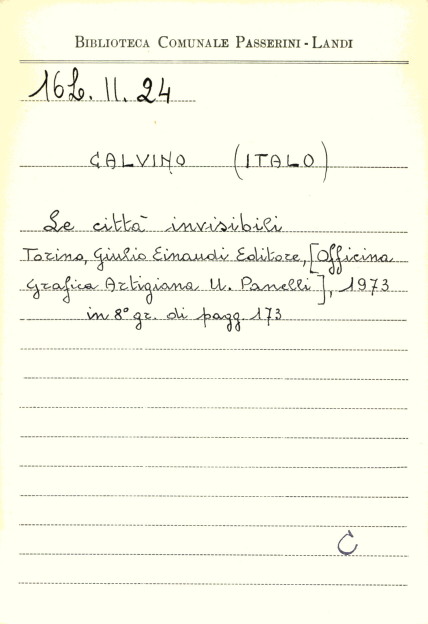 BIBLIOTECA COMUNALE PASSERINI - LANDI
16L. II. 24
CALVINO (ITALO)
Le città invisibili
Torino, Giulio Einaudi Editore, [Officina
Grafica Artigiana U. Panelli], 1973
in 8° gr. di pagg. 173
C